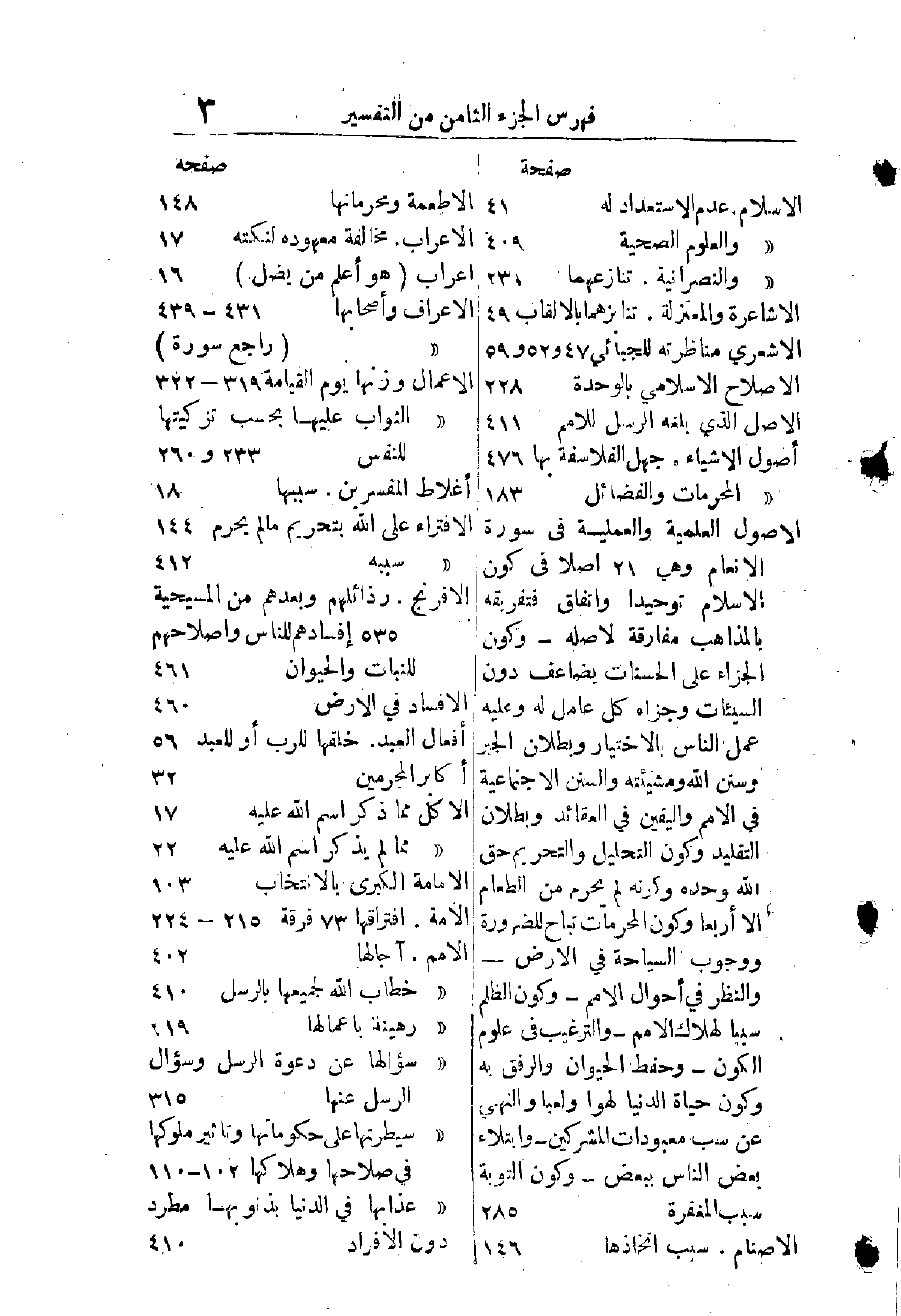 فهرس الجزء الثامن من التفسير ٣
صفحة
الاسلام. عدم الاستعداد له ٤١
« والعلوم الصحية ٤٠٩
« والنصرانية . تنازعهما ٢٣١
الاشاعرة والمعتزلة . تنابزهما بالالقاب ٤٩
الاشعري مناظرته للجبائي ٤٧ و٥٢ و٥٩
الاصلاح الاسلامي بالوحدة ٢٢٨
الاصل الذي بلغه الرسل للامم ٤١١
أصول الاشياء . جهل الفلاسفة بها ٤٧٦
« المحرمات والفضائل ١٨٣
الاصول العلمية والعملية فى سورة
الانعام وهي ٢١ اصلا فى كون
الاسلام توحيدا واتفاق فتفريقه
بالمذاهب مفارقة لاصله – وكون
الجزاء على الحسنات يضاعف دون
السيئات وجزاء كل عامل له وعليه
عمل الناس بالاختيار وبطلان الجبر
وسنن الله ومشيئته والسنن الاجتماعية
في الامم واليقين في العقائد وبطلان
التقليد وكون التحليل والتحريم حق
الله وحده وكونه لم يحرم من الطعام
الا أربعا وكون المحرمات تباح للضرورة
ووجوب السياحة في الارض —
والنظر في أحوال الامم – وكون الظلم
سببا لهلاك الامم – والترغيب فى علوم
الكون – وحفظ الحيوان والرفق به
وكون حياة الدنيا لهوا ولعبا والنهي
عن سب معبودات المشركين – وابتلاء
بعض الناس ببعض – وكون التوبة
سبب المغفرة ٢٨٥
الاصنام . سبب اتخاذها ١٤٦
صفحه
الاطعمة ومحرماتها ١٤٨
الاعراب. مخالفة معهوده لنكتة ١٧
اعراب ( هو أعلم من يضل ) ١٦
الاعراف وأصحابها ٤٣١ – ٤٣٩
« ( راجع سورة )
الاعمال وزنها يوم القيامة ٣١٩ – ٣٢٢
« الثواب عليها بحسب تزكيتها
للنفس ٢٣٣ و ٢٦٠
أغلاط المفسرين . سببها ١٨
الافتراء على الله بتحريم مالم يحرم ١٤٤
« سببه ٤١٢
الافرنج . رذائلهم وبعدهم من المسيحية
٥٣٥ إفسادهم للناس واصلاحهم
للنبات والحيوان ٤٦١
الافساد في الارض ٤٦٠
أفعال العبد. خلقها للرب أو للعبد ٥٦
أكابر المجرمين ٣٢
الاكل مما ذكر اسم الله عليه ١٧
« مما لم يذكر اسم الله عليه ٢٢
الامامة الكبرى بالانتخاب ١٠٣
الأمة . افتراقها ٧٣ فرقة ٢١٥ – ٢٢٤
الامم . آجالها ٤٠٢
« خطاب الله لجميعها بالرسل ٤١٠
« رهينة باعمالها ١١٩
« سؤالها عن دعوة الرسل وسؤال
الرسل عنها ٣١٥
« سيطرتها على حكوماتها وتاثير ملوكها
في صلاحها وهلاكها ١٠٢ – ١١٠
« عذابها في الدنيا بذنوبها مطرد
دون الأفراد ٤١٠